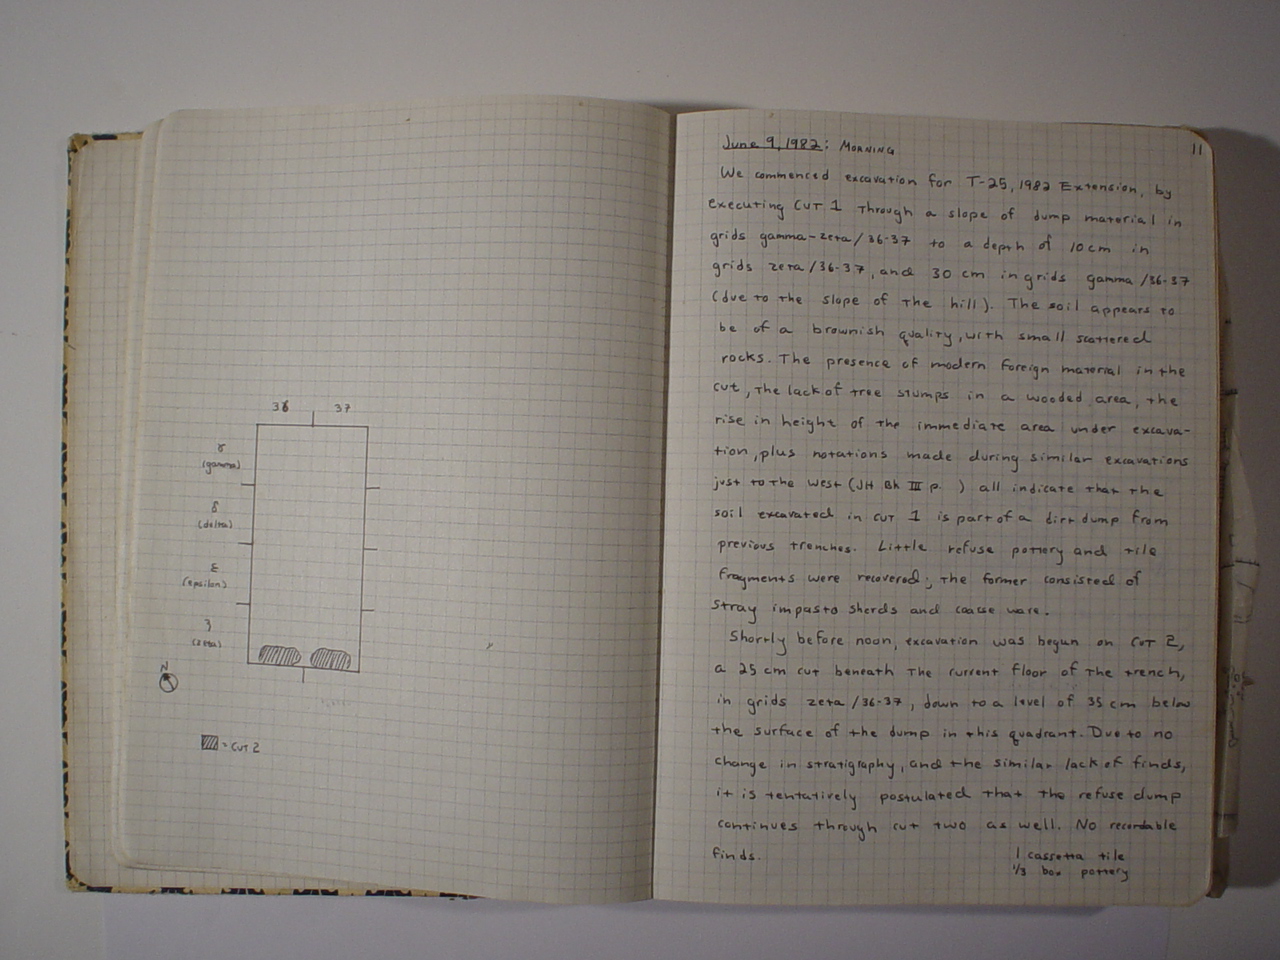 36 37
γ
(gamma)
δ
(delta)
ε
(epsilon)
ζ
(zeta)
N
= CUT 2
11
June 9, 1982: MORNING
We commenced excavation for T-25, 1982 Extension, by
executing CUT 1 through a slope of dump material in
grids gamma-zeta/36-37 to a depth of 10 cm in
grids zeta/36-37, and 30 cm in grids gamma/36-37
(due to the slope of the hill). The soil appears to
be of a brownish quality, with small scattered
rocks. The presence of modern foreign material in the
cut, the lack of tree stumps in a wooded area, the
rise in height of the immediate area under excava-
tion, plus notations made during similar excavations
just to the West (JH Bk III p. ) all indicate that the
soil excavated in cut 1 is part of a dirt dump from
previous trenches. Little refuse pottery and tile
fragments were recovered; the former consisted of
stray impasto sherds and coarse ware.
Shortly before noon, excavation was begun on CUT 2,
a 25 cm cut beneath the current floor of the trench,
in grids zeta/36-37, down to a level of 35 cm below
the surface of the dump in this quadrant. Due to no
change in stratigraphy, and the similar lack of finds,
it is tentatively postulated that the refuse dump
continues through cut two as well. No recordable
finds.
1 cassetta tile
1/3 box pottery